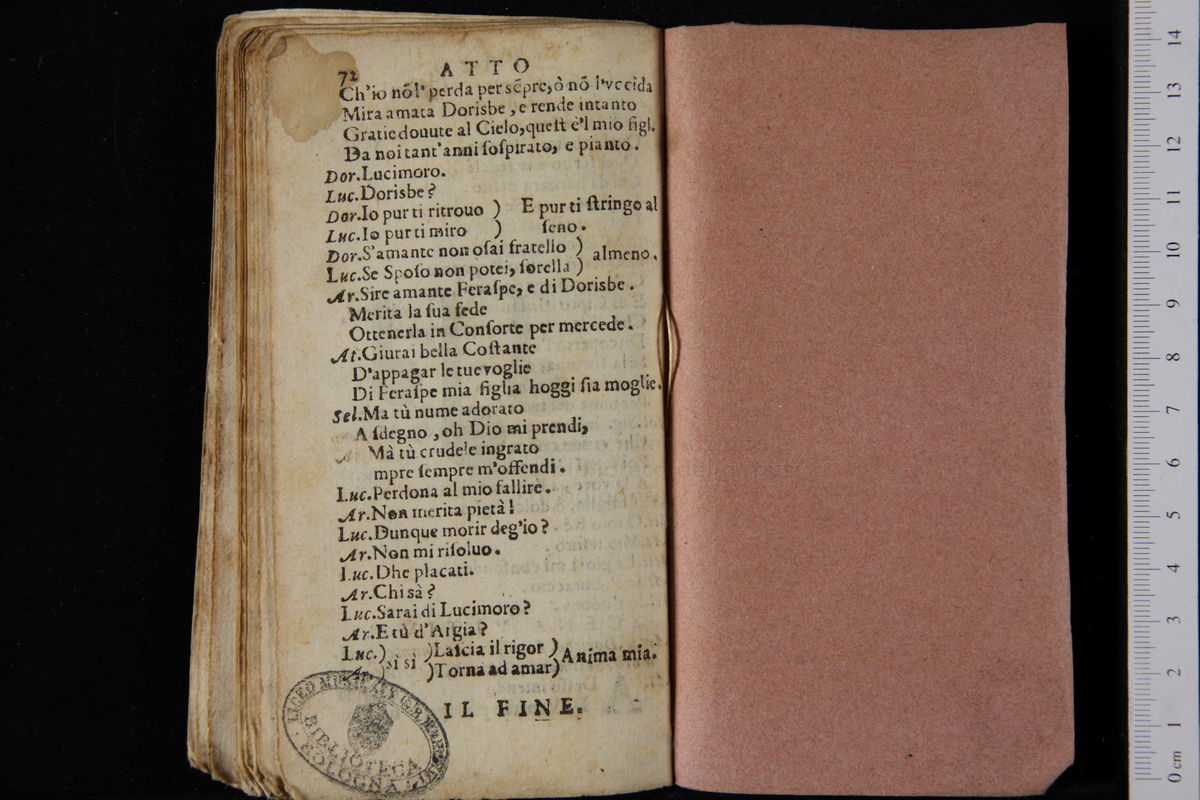 72
ATTO
Ch'io nõ l' perda per sẽpre, ò nõ l'vccida
Mira amata Dorisbe, e rende intanto
Gratie douute al Cielo, quest è'l mio figl.
Da noi tant' anni sospirato, e pianto.
Dor. Lucimoro.
Luc. Dorisbe?
Dor. Io pur ti ritrouo ) E pur ti stringo al
Luc. Io pur ti miro ) seno.
Dor. S'amante non osai fratello ) almeno.
Luc. Se Sposo non potei, sorella )
Ar. Sire amante Feraspe, e di Dorisbe.
Merita la sua fede
Ottenerla in Consorte per mercede.
At. Giurai bella Costante
D'appagar le tue voglie
Di Feraspe mia figlia hoggi sia moglie.
Sel. Ma tù nume adorato
A sdegno, oh Dio mi prendi,
Mà tù crudele ingrato
mpre sempre m'offendi.
Luc. Perdona al mio fallire.
Ar. Non merita pietà!
Luc. Dunque morir deg'io?
Ar. Non mi risoluo.
Luc. Dhe placati.
Ar. Chi sà?
Luc. Sarai di Lucimoro?
Ar. E tù d'Argia?
Luc. ) sì sì )Lascia il rigor ) Anima mia.
Ar. ) )Torna ad amar)
IL FINE.
LICEO MUSICALE G.B. MARTINI
BIBLIOTECA
BOLOGNA
14
13
12
11
10
9
8
7
6
5
4
3
2
1
0 cm